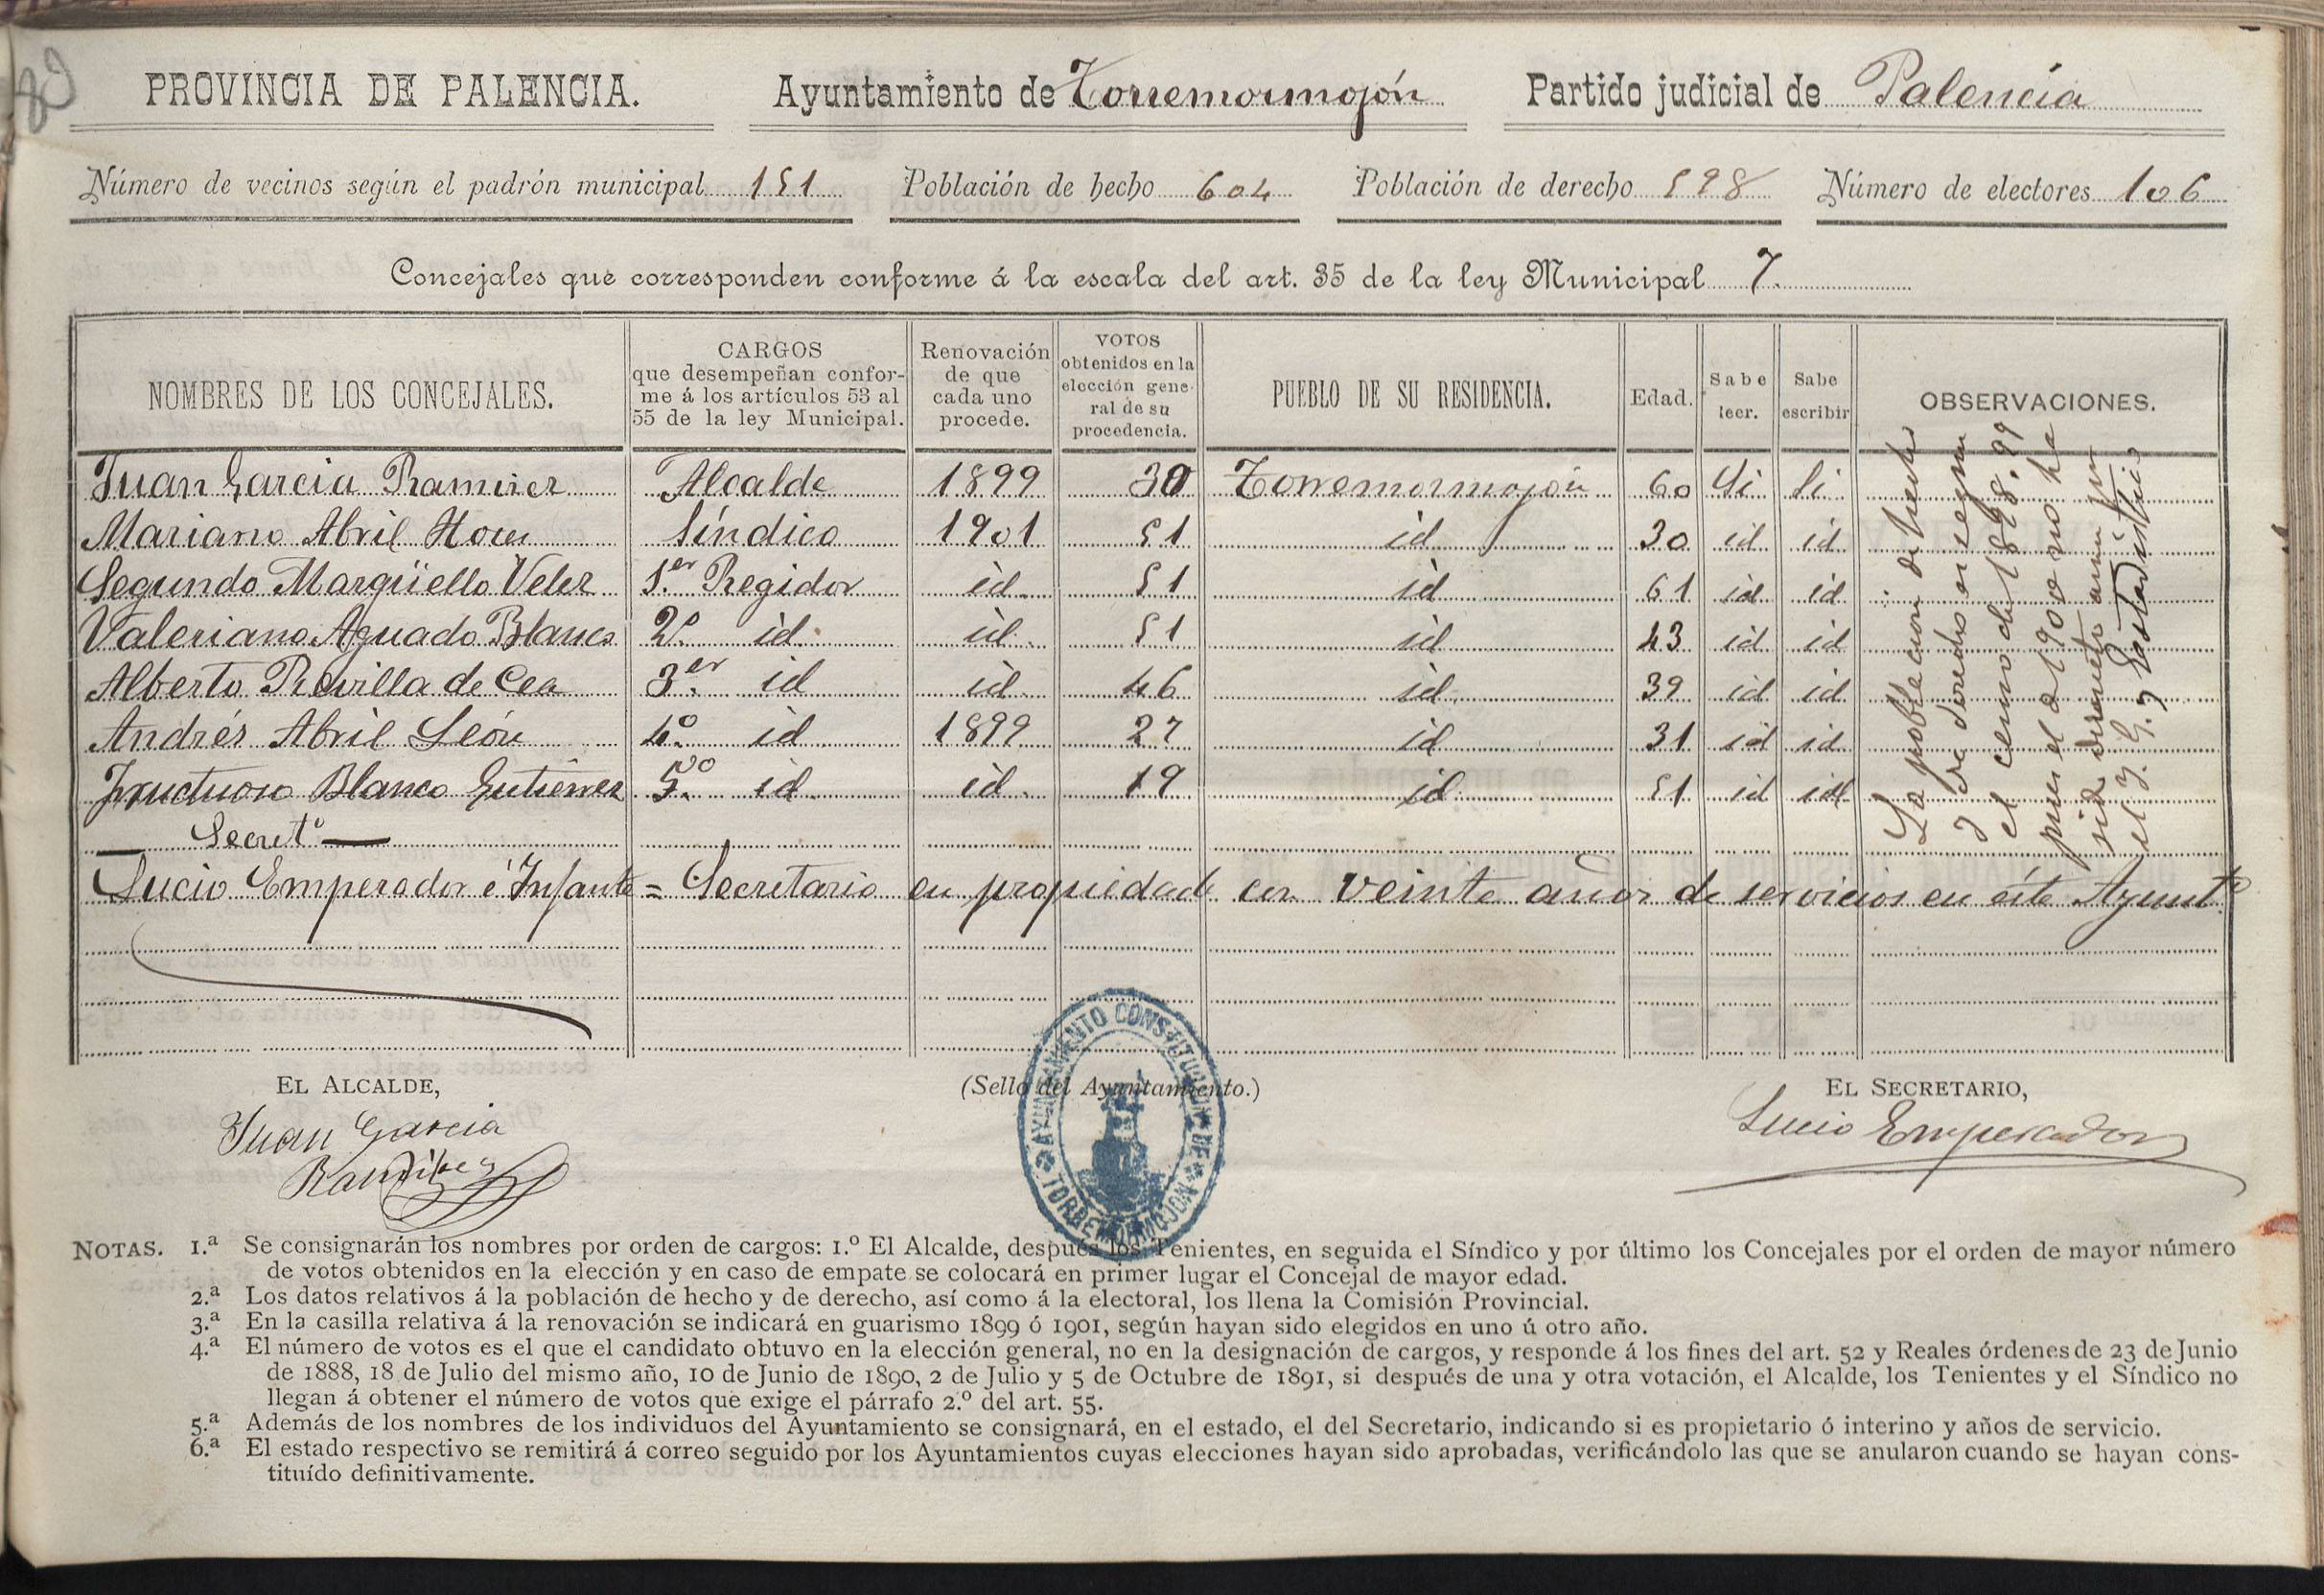 80
PROVINCIA DE PALENCIA. Ayuntamiento de Torremormojón Partido judicial de Palencia
Número de vecinos según el padrón municipal 151 Población de hecho 604 Población de derecho 598 Número de electores 106
Concejales que corresponden conforme á la escala del art. 35 de la ley Municipal 7.
NOMBRES DE LOS CONCEJALES. CARGOS que desempeñan confor-me á los artículos 53 al 55 de la ley Municipal. Renovación de que cada uno procede. VOTOS obtenidos en la elección gene-ral de su procedencia. PUEBLO DE SU RESIDENCIA. Edad. Sabe leer. Sabe escribir OBSERVACIONES.
Juan Garcia Ramirez Alcalde 1899 30 Torremormojón 60 Si Si
Mariano Abril Síndico 1901 51 id 30 id id
Segundo Margüello Velez 1.er Regidor id. 51 id 61 id id
Valeriano Aguado Blanco 2.º id. id. 51 id 43 id id
Alberto Revilla de Cea 3.er id id. 46 id. 39 id id
Andrés Abril León 4.º id 1899 27 id 31 id id
Fructuoso Blanco Gutiérrez 5.º id. id. 19 id 51 id id
Secret.º
Lucio Emperador é Infante = Secretario en propiedad con veinte años de servicios en éste Ayunt.º
La poblacion de hecho
y de derecho es segun
el censo de 1898.99
pues el de 1900 no ha
sid devuelto aun por
el Y. G. y Estadistico
EL ALCALDE, (Sello del Ayuntamiento.) EL SECRETARIO,
Juan Garcia
Ramirez
Lucio Emperador
AYUNTAMIENTO CONSTITUCIONAL DE TORREMORMOJON
NOTAS. 1.ª Se consignarán los nombres por orden de cargos: 1.º El Alcalde, después los Tenientes, en seguida el Síndico y por último los Concejales por el orden de mayor número
de votos obtenidos en la elección y en caso de empate se colocará en primer lugar el Concejal de mayor edad.
2.ª Los datos relativos á la población de hecho y de derecho, así como á la electoral, los llena la Comisión Provincial.
3.ª En la casilla relativa á la renovación se indicará en guarismo 1899 ó 1901, según hayan sido elegidos en uno ú otro año.
4.ª El número de votos es el que el candidato obtuvo en la elección general, no en la designación de cargos, y responde á los fines del art. 52 y Reales órdenes de 23 de Junio
de 1888, 18 de Julio del mismo año, 10 de Junio de 1890, 2 de Julio y 5 de Octubre de 1891, si después de una y otra votación, el Alcalde, los Tenientes y el Síndico no
llegan á obtener el número de votos que exige el párrafo 2.º del art. 55.
5.ª Además de los nombres de los individuos del Ayuntamiento se consignará, en el estado, el del Secretario, indicando si es propietario ó interino y años de servicio.
6.ª El estado respectivo se remitirá á correo seguido por los Ayuntamientos cuyas elecciones hayan sido aprobadas, verificándolo las que se anularon cuando se hayan cons-
tituído definitivamente.